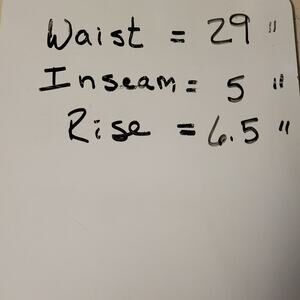 Waist = 29 "
Inseam = 5 "
Rise = 6.5 "